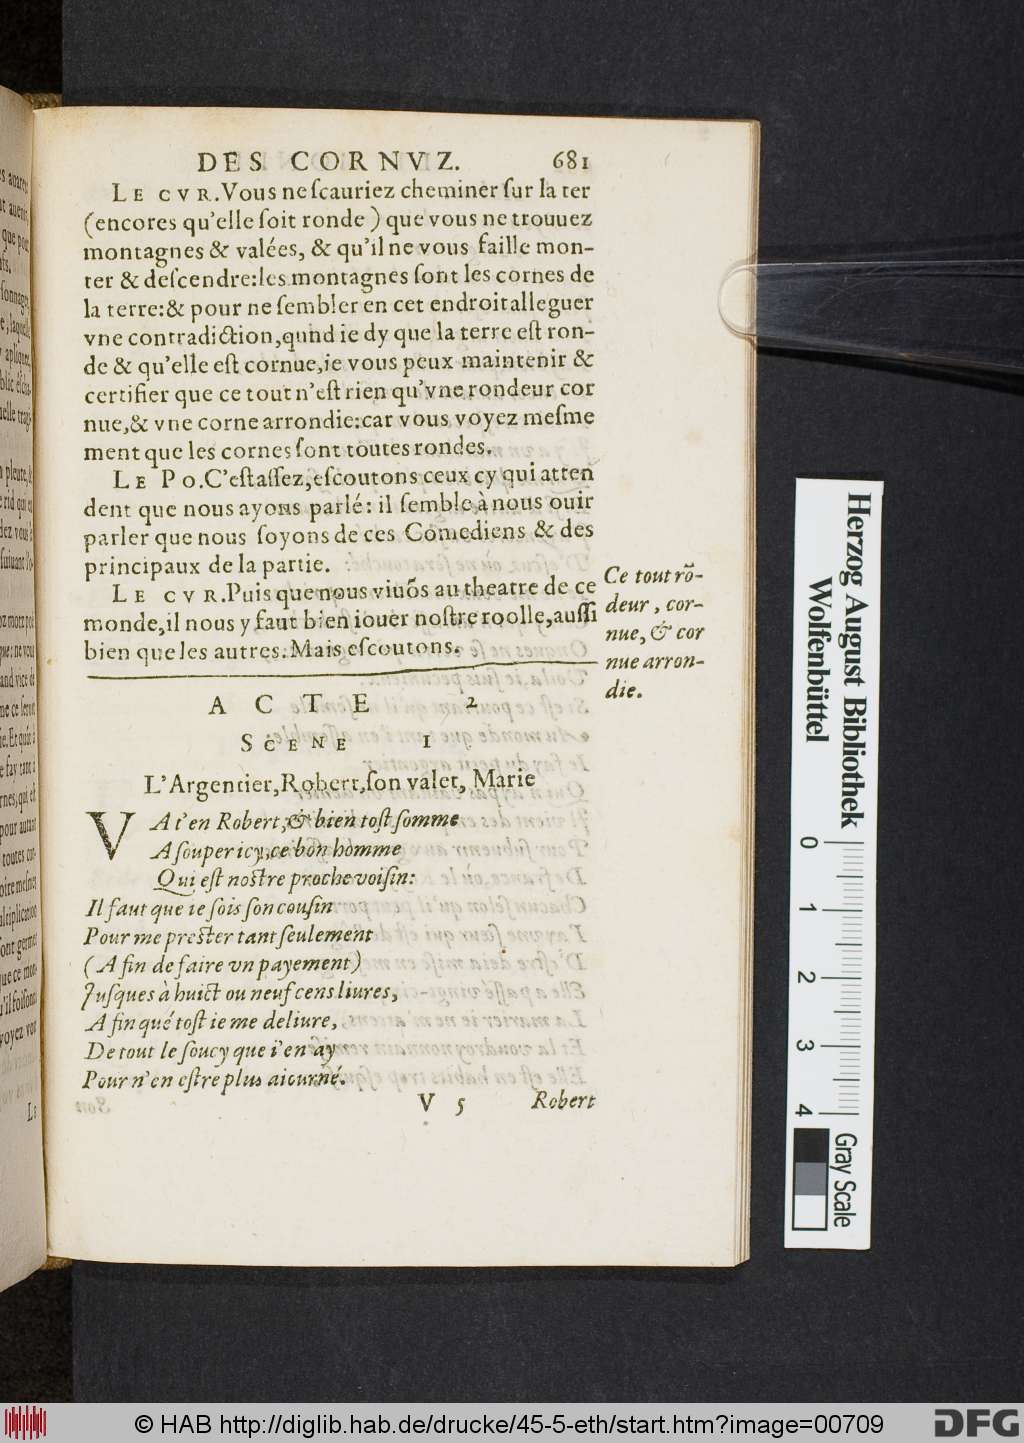 DES CORNVZ. 681
LE CVR. Vous ne ſcauriez cheminer ſur la ter
(encores qu'elle ſoit ronde) que vous ne trouuez
montagnes & valées, & qu'il ne vous faille mon-
ter & deſcendre: les montagnes ſont les cornes de
la terre: & pour ne ſembler en cet endroit alleguer
vne contradiction, qund ie dy que la terre eſt ron-
de & qu'elle eſt cornue, ie vous peux maintenir &
certifier que ce tout n'eſt rien qu'vne rondeur cor
nue, & vne corne arrondie: car vous voyez meſme
ment que les cornes ſont toutes rondes.
LE PO. C'eſt aſſez, eſcoutons ceux cy qui atten
dent que nous ayons parlé: il ſemble à nous ouir
parler que nous ſoyons de ces Comediens & des
principaux de la partie.
LE CVR. Puis que nous viuõs au theatre de ce
monde, il nous y faut bien iouer noſtre roolle, auſſi
bien que les autres. Mais eſcoutons.
Ce tout rõ-
deur, cor-
nue, & cor
nue arron-
die.
ACTE 2
SCENE I
L'Argentier, Robert, ſon valet, Marie
VA t'en Robert, & bien toſt ſomme
A ſouper icy, ce bon homme
Qui eſt noſtre proche voiſin:
Il faut que ie ſois ſon couſin
Pour me preſter tant ſeulement
(A fin de faire vn payement)
Juſques à huict ou neuf cens liures,
A fin qué toſt ie me deliure,
De tout le ſoucy que i'en ay
Pour n'en eſtre plus aiourné.
V 5 Robert
Herzog August Bibliothek
Wolfenbüttel
0 1 2 3 4
Gray Scale
© HAB http://diglib.hab.de/drucke/45-5-eth/start.htm?image=00709
DFG